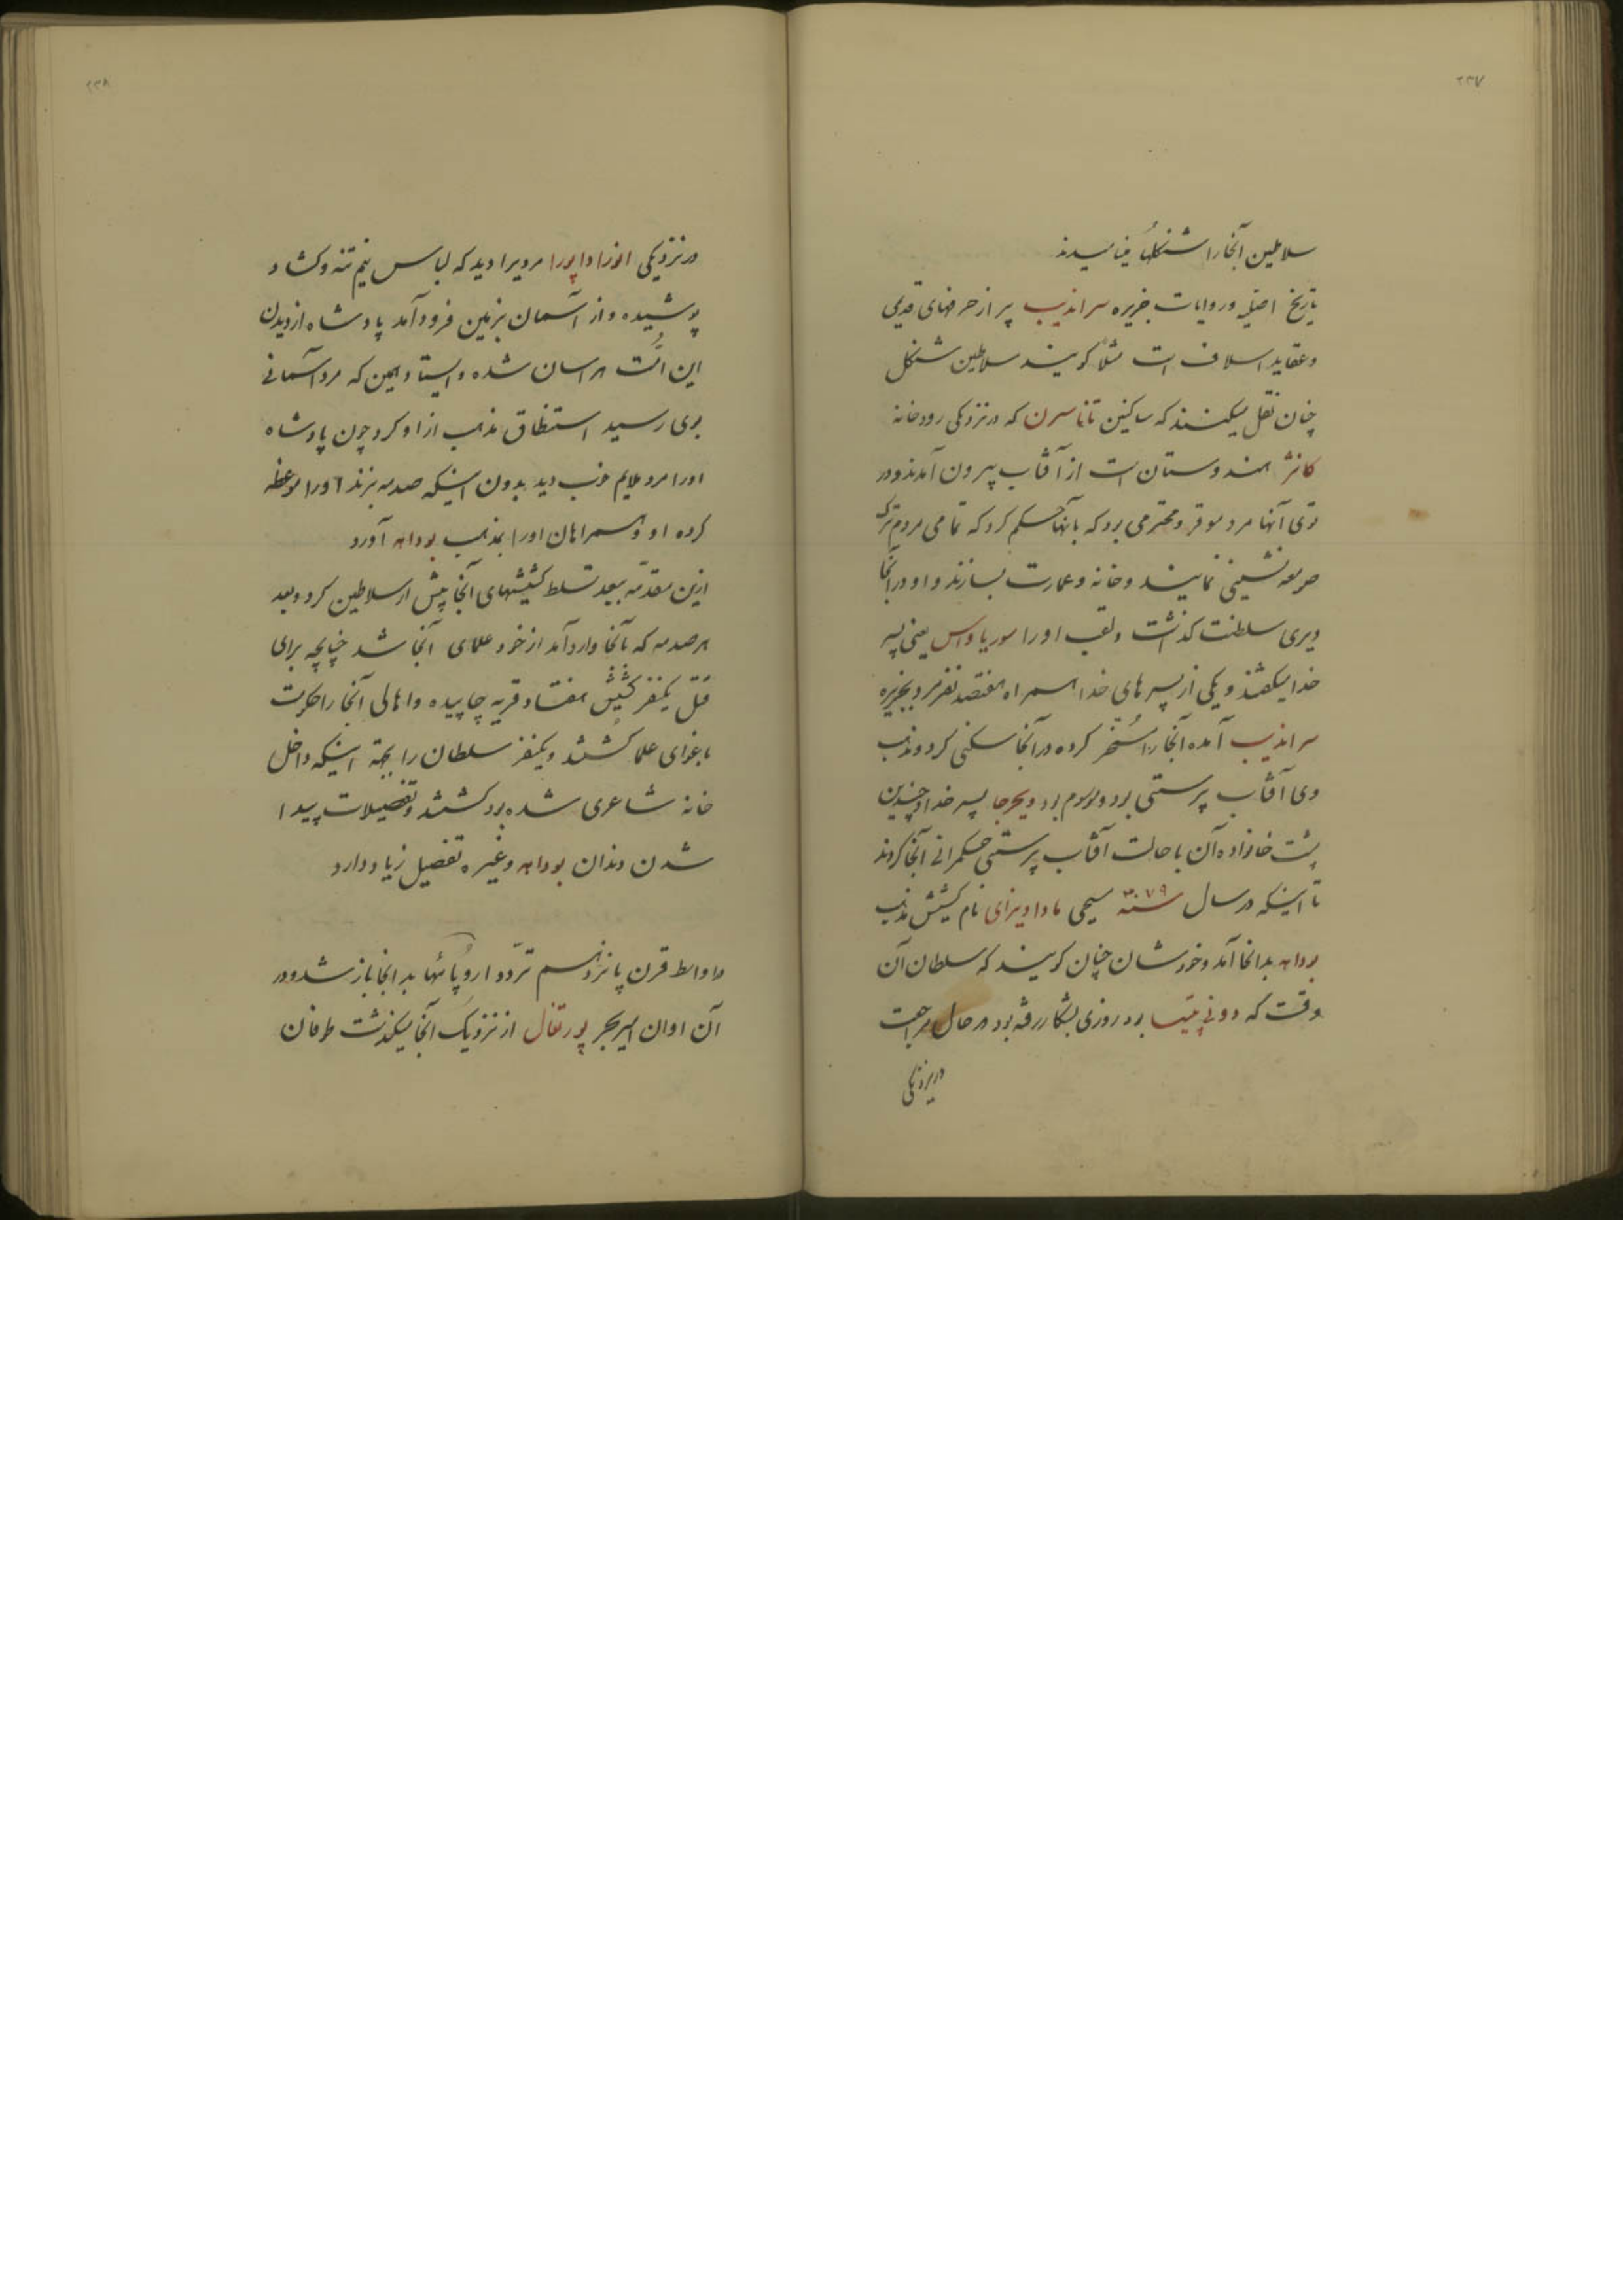 ۲۳۷
سلاطین آنجا را شنگل مینامیدند
تاریخ اصلیه و روایات جزیره سراندیب پر از حرفهای قدیمی
و عقاید اسلاف است مثلاً گویند سلاطین شنگل
چنان نقل میکنند که ساکنین تاناسرن که در نزدیکی رودخانه
کانژ هندوستان است از آفتاب بیرون آمدند و در
توی آنها مرد موقر و محترمی بود که بآنها حکم کرد که تمامی مردم ترک
صومعه نشینی نمایند و خانه و عمارت بسازند و او در آنجا
دیری سلطنت گذاشت و لقب او را سوریاواس یعنی پسر
خدا میگفتند و یکی از پسرهای خدا همراه هفتصد نفر مرد بجزیره
سراندیب آمده آنجا را مسخر کرده در آنجا سکنی کرد و مذهب
وی آفتاب پرستی بود و موسوم بود ویجرجا پسر خدا و چندین
پشت خانواده آن با حالت آفتاب پرستی حکمرانی آنجا کردند
تا اینکه در سال سنه ۳۰۷۹ مسیحی مادا ویزای نام کشیش مذهب
بوداهه بدانجا آمد و خودشان چنان گویند که سلطان آن
وقت که دونی پتیسا بود روزی بشکار رفته بود در حال مراجعت
در نزدیکی
۲۳۸
در نزدیکی انوراداپورا مردیرا دید که لباس نیم تنه و گشاد
پوشیده و از آسمان بزمین فرود آمد پادشاه از دیدن
این حالت هراسان شده و ایستاد همین که مرد آسمانی
بوی رسید استنطاق مذهب از او کرد چون پادشاه
او را مرد ملایم خوب دید بدون اینکه صدمه بزند او را موعظه
کرده او و همراهان او را بمذهب بوداهه آورد
ازین مقدمه ببعد تسلط کشیشهای آنجا پیش از سلاطین کرد و بعد
هر صدمه که بآنجا وارد آمد از خود علمای آنجا شد چنانچه برای
قتل یکنفر کشیش هفتاد قریه چاپیده و اهالی آنجا را حکومت
باغوای علما کشتند و یکنفر سلطان را بجهة اینکه داخل
خانه شاعری شده بود کشتند و تفصیلات پیدا
شدن دندان بوداهه و غیره تفصیل زیاد دارد
در اواسط قرن پانزدهم تردد اروپائیها بدانجا باز شد و در
آن اوان امیر بحر پورتقال از نزدیک آنجا میگذشت طوفان